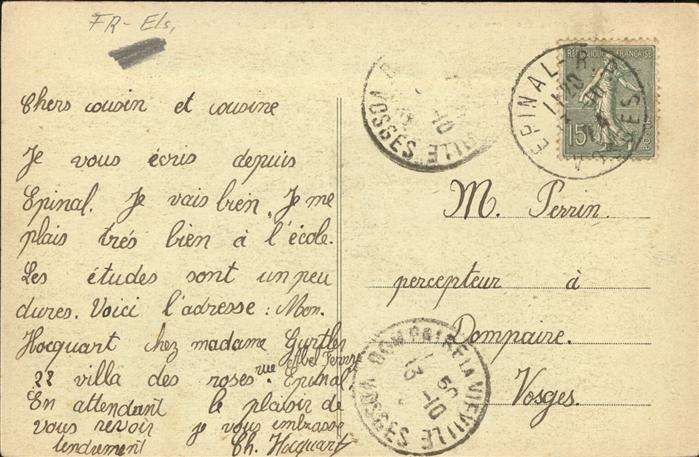 FR- Els,
Chers cousin et cousine
Je vous écris depuis
Epinal. Je vais bien. Je me
plais très bien à l'école.
Les études sont un peu
dures. Voici l'adresse : Mon.
Hocquart chez madame Gurtler
22 villa des roses rue Abel Epinal
En attendant le plaisir de
vous revoir je vous embrasse
tendrement Ch. Hocquart
RÉPUBLIQUE FRANÇAISE
15
EPINAL
VOSGES
VILLE
VOSGES
10
M. Perrin
percepteur à
Dompaire.
Vosges.
DOMPAIRE LA VIEVILLE
13 -10
VOSGES